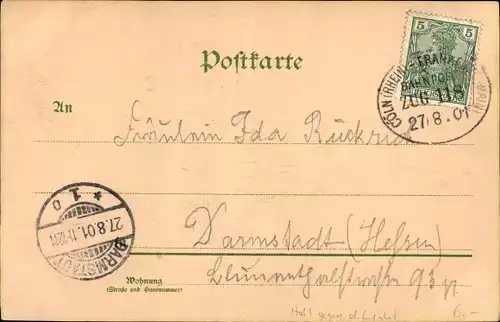 Postkarte
5
CÖLN (RHEIN) - FRANKFURT MAIN
BAHNPOST
ZUG 118
27.8.01
An
Fräulein Ida Rückrich
Darmstadt (Hessen)
93
* 1 o
27.8.01.11-12N
DARMSTADT
Wohnung
(Straße und Hausnummer)
6,-